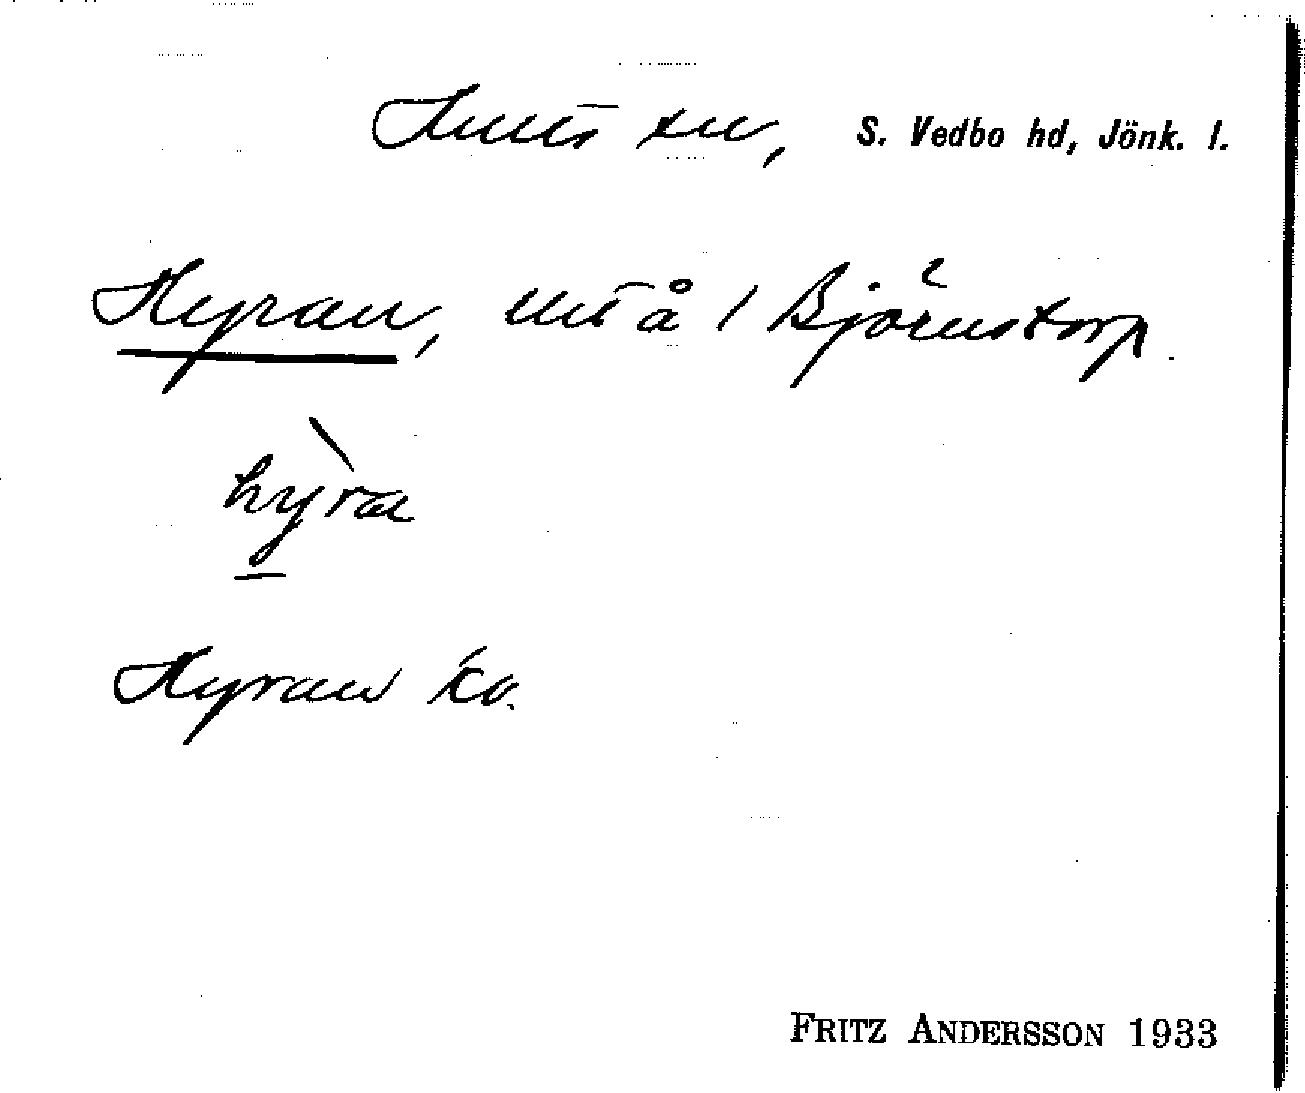 Hults sn, S. Vedbo hd, Jönk. l.
Hyran, å Björnstorp.
hyra
Hyran
FRITZ ANDERSSON 1933